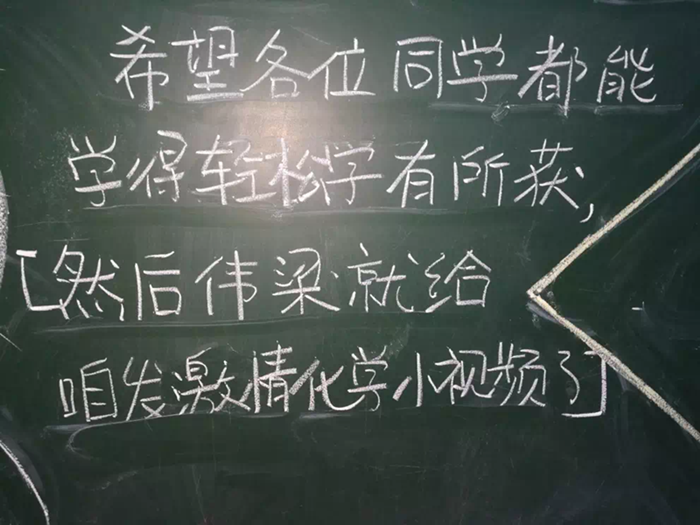 希望各位同学都能
学得轻松学有所获,
[然后伟梁就给
咱发激情化学小视频了]